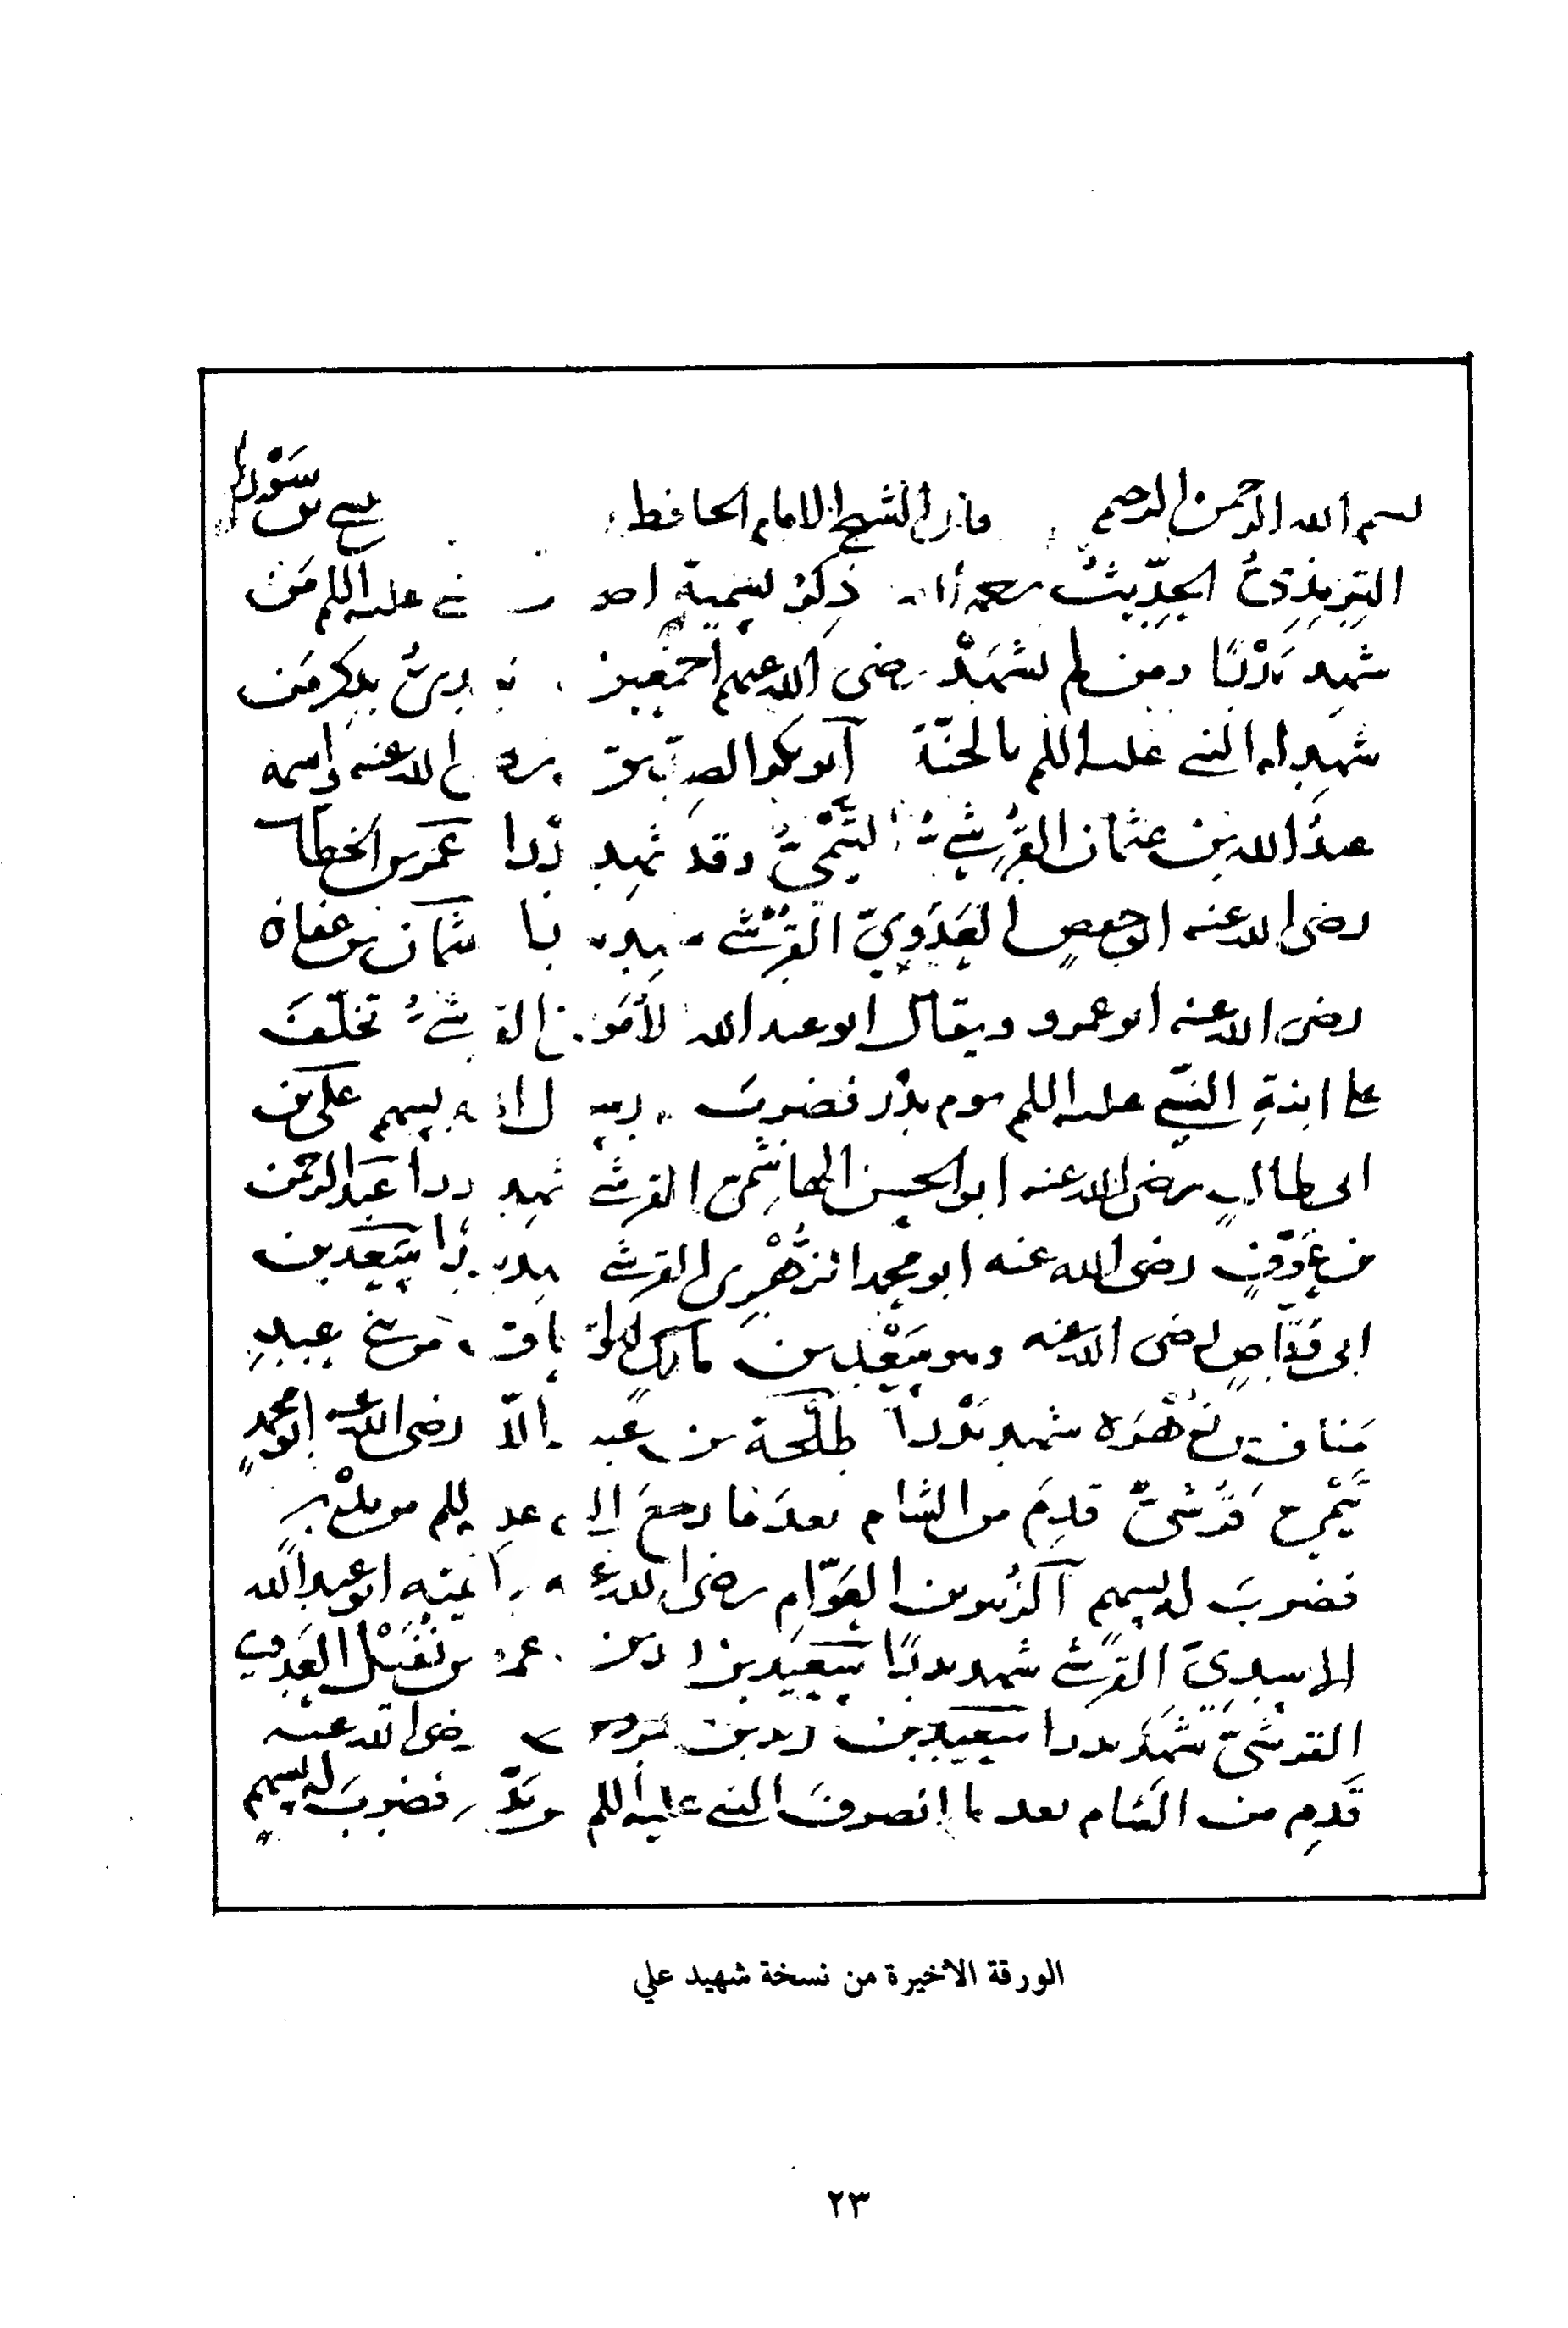 بسم الله الرحمن الرحيم قال الشيخ الامام الحافظ عيسى بن سورة
الترمذي الحديث ذكر تسمية عليه السلم من
شهد بدرا ومن لم يشهد رضى الله عنهم اجمعين بذكر من
شهد له النبي عليه السلم بالجنة أبو بكر الصديق رضى الله عنه واسمه
عبد الله بن عثمان القرشي التيمي وقد شهد بدرا عمر بن الخطاب
رضى الله عنه ابو حفص العدوي القرشي شهد بدرا عثمان بن عفان
رضى الله عنه ابو عمرو ويقال ابو عبد الله الأموي القرشي تخلف
على ابنة النبي عليه السلم يوم بدر فضرب له بسهم علي بن
ابي طالب رضى الله عنه ابو الحسن الهاشمي القرشي شهد بدرا عبد الرحمن
بن عوف رضى الله عنه ابو محمد الزهري القرشي شهد بدرا سعد بن
ابى وقاص رضى الله عنه وهو سعد بن مالك عبد
مناف بن زهرة شهد بدرا طلحة بن عبيد الله رضى الله عنه ابو محمد
تيمي قرشي قدم من الشام بعد ما رجع السلم من بدر
فضرب له بسهم الزبير بن العوام رضى الله عنه ابو عبد الله
الاسدي القرشي شهد بدرا سعيد بن زيد بن عمرو بن نفيل العدوي
القرشي شهد بدرا سعيد بن زيد بن رضى الله عنه
قدم من الشام بعد ما انصرف النبي عليه السلم من بدر فضرب له بسهم
الورقة الاخيرة من نسخة شهيد علي
٢٣